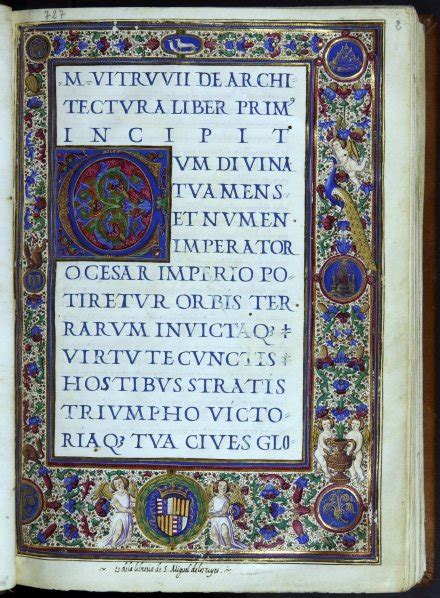 727
2
M VITRVVII DE ARCHI
TECTVRA LIBER PRIMꝰ
INCIPIT
CVM DIVINA
TVA MENS
ET NVMEN
IMPERATOR
O CESAR IMPERIO PO-
TIRETVR ORBIS TER
RARVM INVICTAQꝫ
VIRTVTE CVNCTIS
HOSTIBVS STRATIS
TRIVMPHO VICTO-
RIAQꝫ TVA CIVES GLO-
Es dela libreria de S. Miguel delos reyes.